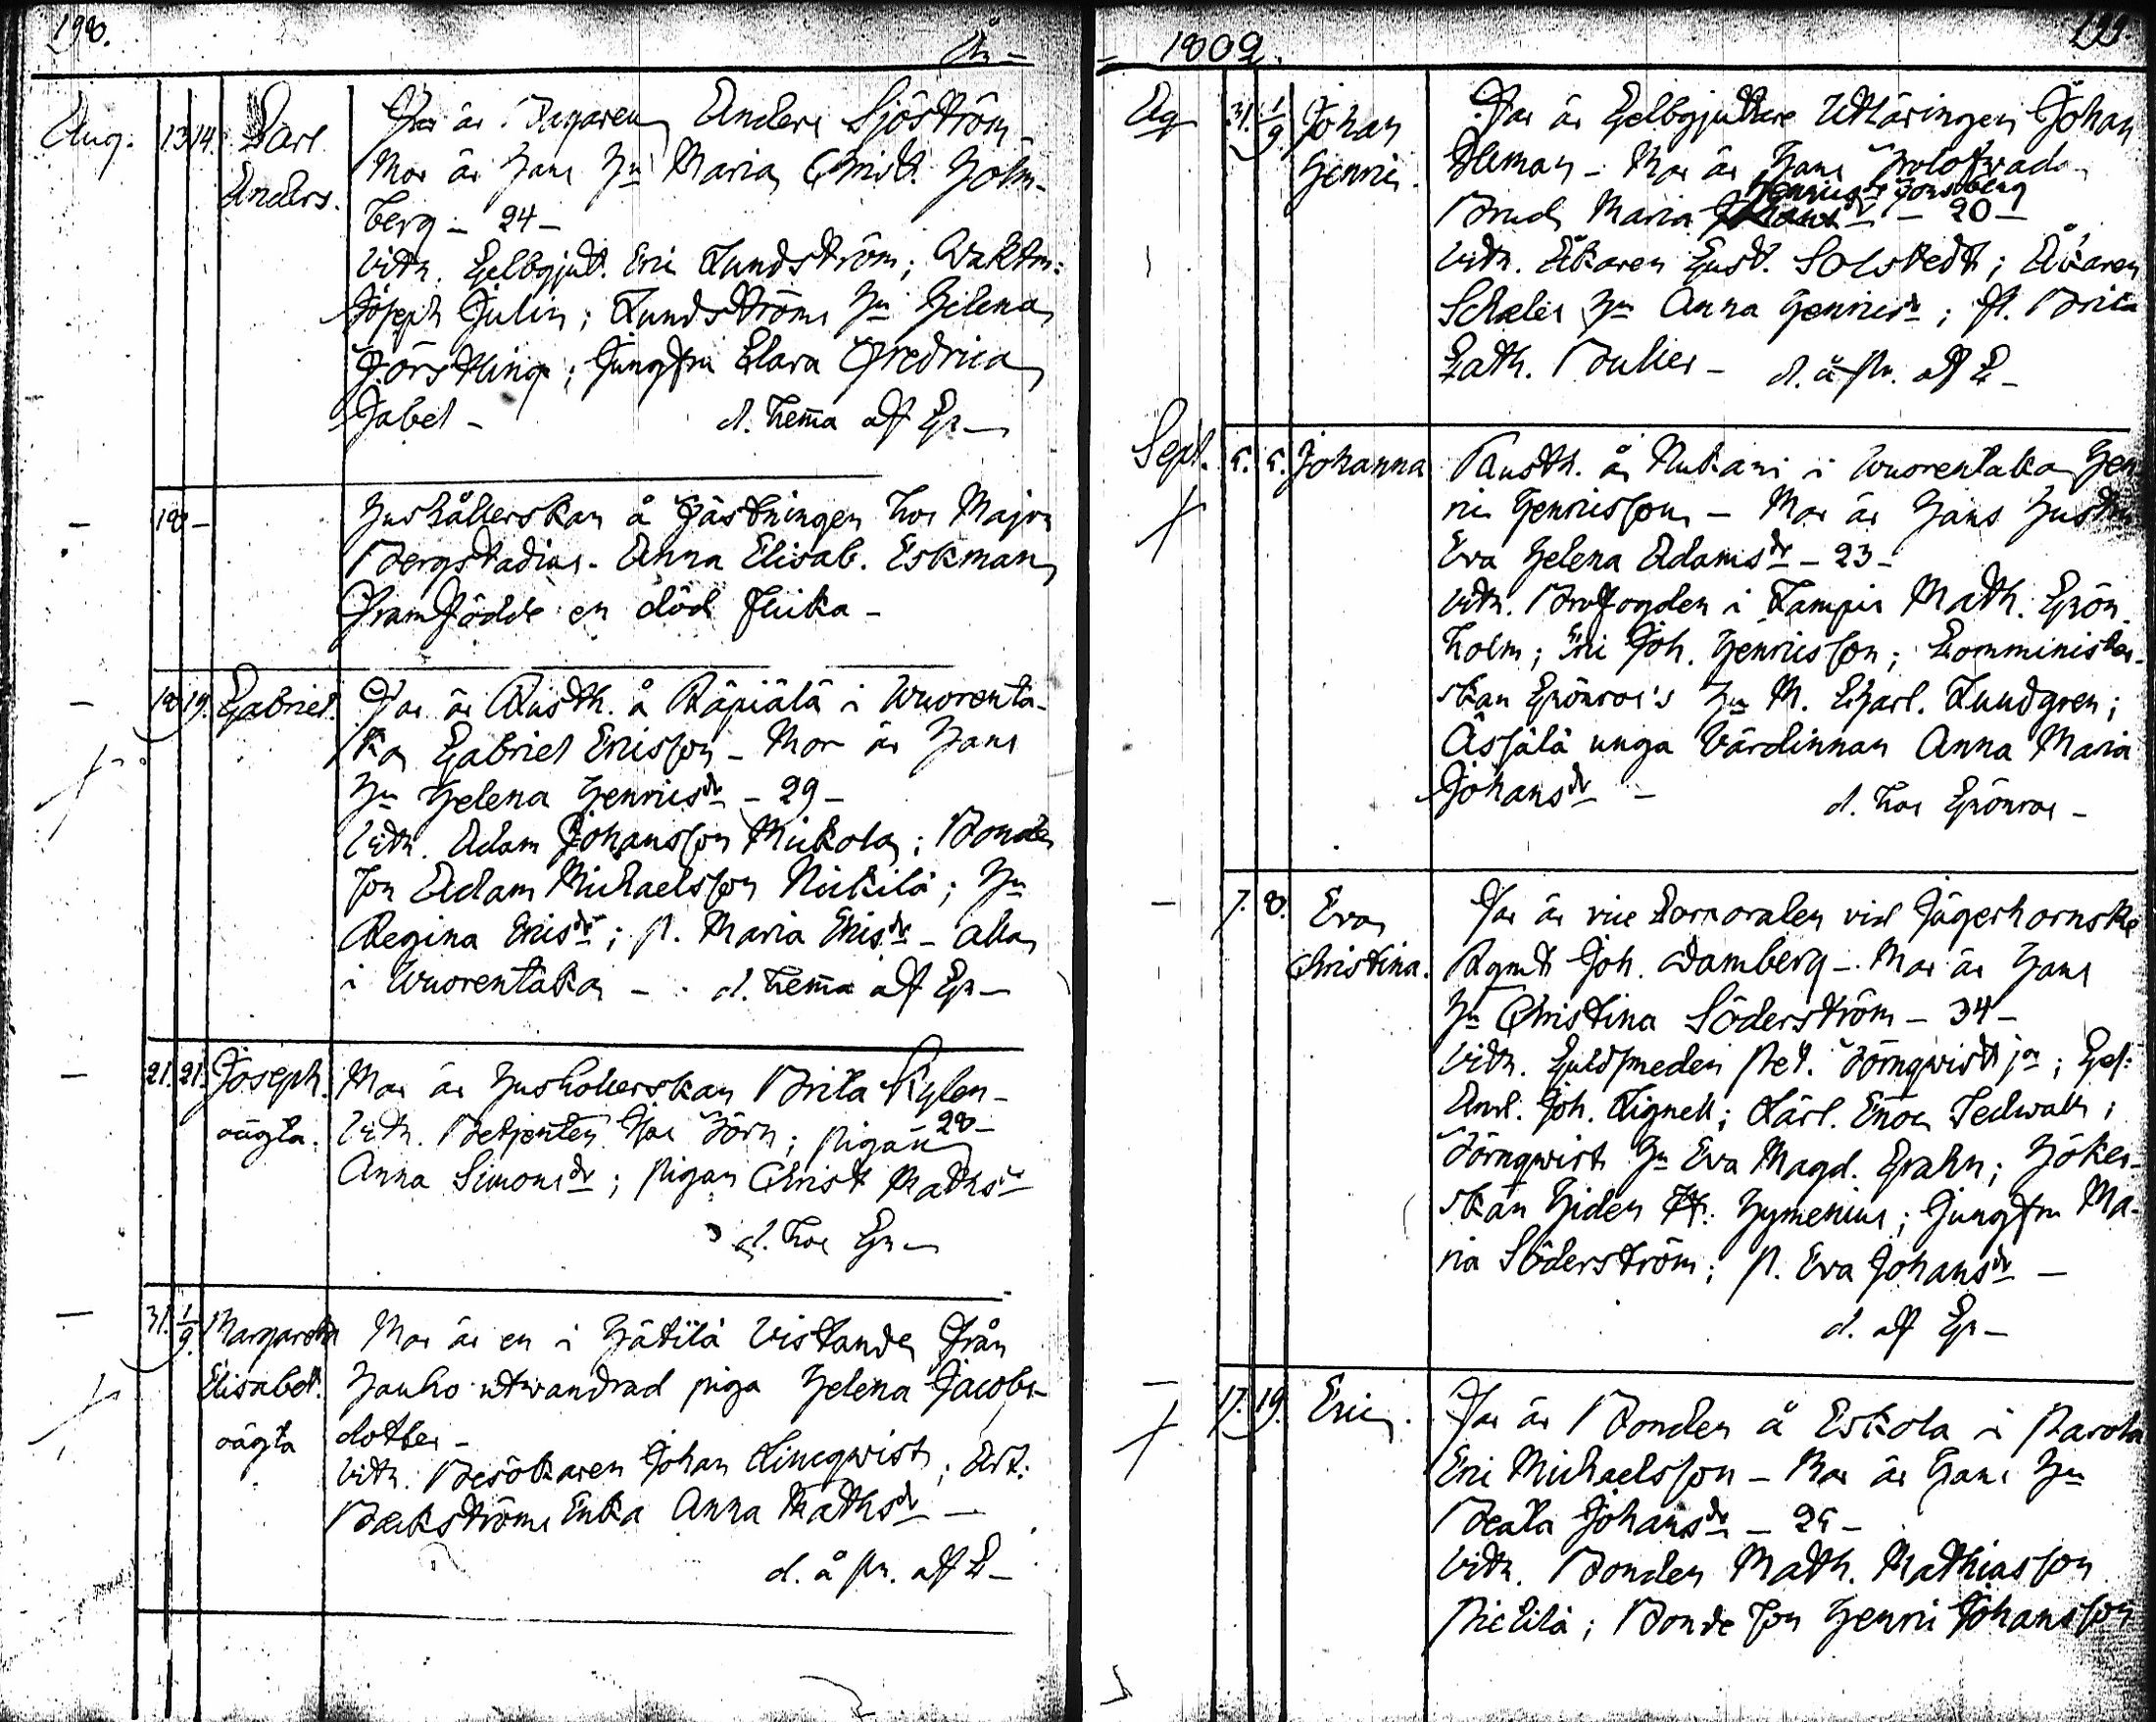 198.
År
Aug. 13. 14. Carl
Anders.
Far är Bagaren Anders Sjöström
Mor är hans Hu Maria Christ. Holm-
berg - 24 -
Vitn. Gelbgjut. Eric Lundström; Waktm:
Joseph Julin; Lundströms Hu Helena
Förstling; Jungfru Clara Fredrica
Jabel - d. hema af Gr -
18 -
Hushållerskan å Gästningen hos Major
Bergstadius. Anna Elisab. Eskman
Framfödde en död flicka -
18. 19. Gabriel.
Far är Rusth. å Räpiälä i Wuorenta-
ka Gabriel Ericsson - Mor är hans
Hu Helena Henricsdr - 29 -
Vitn. Adam Johansson Mickola; Bonde
son Adam Michaelsson Nickilä; Hu
Regina Ericsdr; p. Maria Ericsdr - alla
i Wuorentaka - d. hema af Gr -
21. 21. Joseph.
oägta.
Mor är Hushollerskan Brita Rylen -
28 -
Vitn. Betjenten hos Törn; pigan
Anna Simonsdr; pigan Christ Mathsdr
d. hos Gr -
31. 1/9. Margareta
Elisabet.
oägta
Mor är en i Hätilä vistande från
Hauho utwandrad piga Helena Jacobs-
dotter -
Vitn. Besökaren Johan Lincqwist; Art:
Backströms Enka Anna Mathsdr -
d. å pr. af L -
1802.
199.
Ag 31. 1/9 Johan
Henric.
Far är Gelbgjuttare Uttäringen Johan
Aleman - Mor är hans trolofwade
Henricsdr Forssberg
Brud Maria - 20 -
Vitn. Åkaren Gust. Solstedt; Åkaren
Schæler Hu Anna Henricsdr; fl. Brita
Cath. Bulier - d. å pr. af L -
Sept. 5. 5. Johanna
Rusth. å Nukari i Wuorentaka Hen-
ric Henricsson - Mor är hans hustru
Eva Helena Adamsdr - 23 -
Vitn. Brofogden i Lampis Math. Grön-
holm; Eric Joh. Henricsson; Comminister-
skan Grönroos's Hu M. Charl. Lundgren;
Äsjälä unga Värdinnan Anna Maria
Johansdr - d. hos Grönroos -
7. 8. Eva
Christina.
Far är vice Corporalen vid Jägerhornske
Rgmt Joh. Damberg - Mor är hans
Hu Christina Söderström - 34 -
Vitn. Guldsmeden Pet. Törnqwist jor; Ges:
And. Joh. Lignell; Lärl. Enoc Tedwall;
Törnqwist Hu Eva Magd. Grahn; Höker-
skan Hiden H. Hymenius; Jungfru Ma-
ria Söderström; p. Eva Johansdr -
d. af Gr -
17. 19. Eric.
Far är Bonden å Eskola i Parola
Eric Michaelsson - Mor är hans Hu
Beata Johansdr - 25 -
Vitn. Bonden Math. Mathiasson
Pietilä; Bonde son Henric Johansson